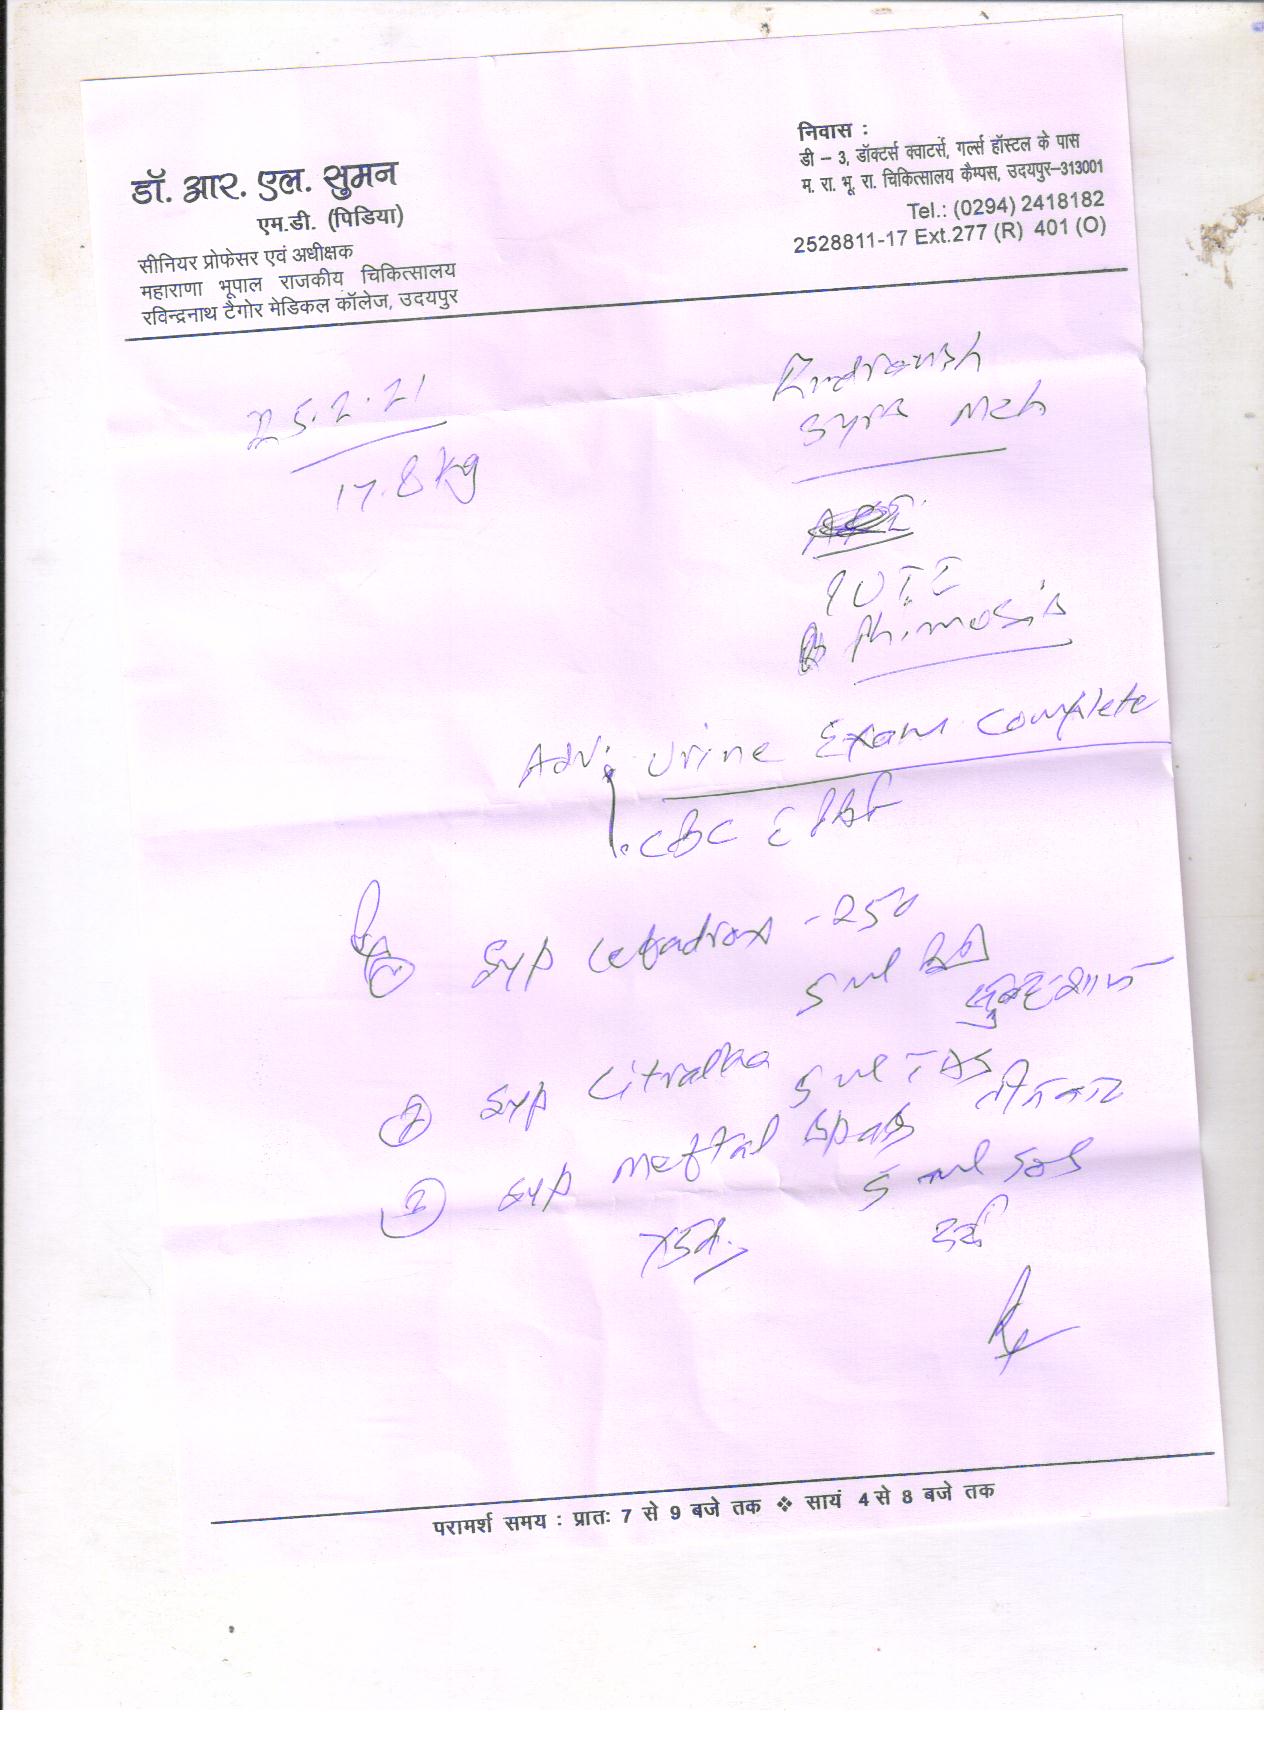 डॉ. आर. एल. सुमन
एम.डी. (पिडिया)
सीनियर प्रोफेसर एवं अधीक्षक
महाराणा भूपाल राजकीय चिकित्सालय
रविन्द्रनाथ टैगोर मेडिकल कॉलेज, उदयपुर
निवास :
डी – 3, डॉक्टर्स क्वाटर्से, गर्ल्स हॉस्टल के पास
म. रा. भू. रा. चिकित्सालय कैम्पस, उदयपुर–313001
Tel.: (0294) 2418182
2528811-17 Ext.277 (R) 401 (O)
25.2.21
17.8 kg
3yrs Mch
UTI
Phimosis
Adv: Urine Exam Complete
CBC
Syp Cefadrox -250
5 ml BD
सुबह शाम
② Syp Citralka 5 ml TDS
तीन बार
Syp Meftal Spas
5 ml SOS
दर्द
परामर्श समय : प्रातः 7 से 9 बजे तक ❖ सायं 4 से 8 बजे तक